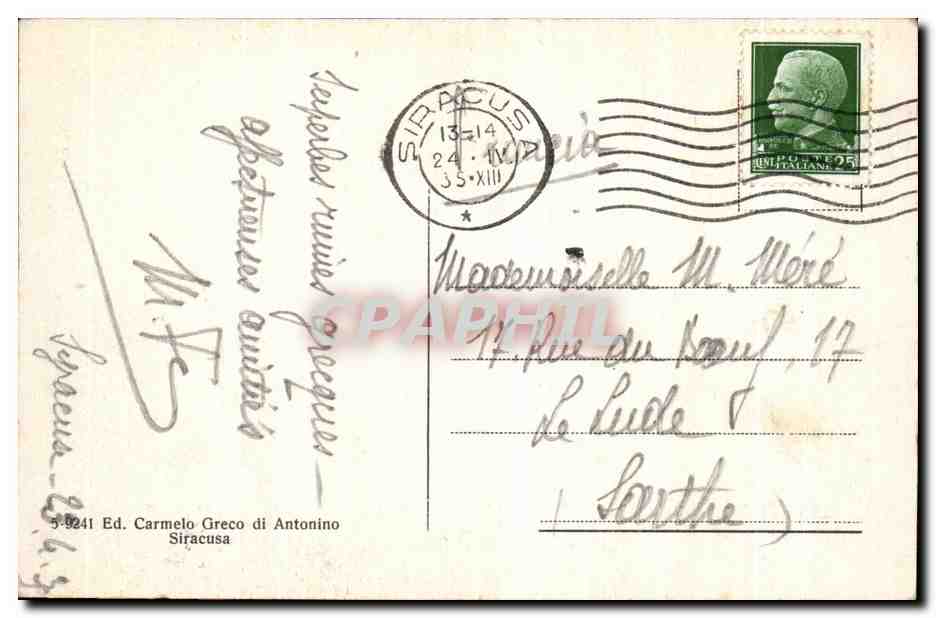 Superbes ruines grecques —
affectueuses amitiés
Syracusa - 23.4.3
5-9241 Ed. Carmelo Greco di Antonino
Siracusa
SIRACUSA
13-14
24 · IV
35 · XIII
POSTE
ITALIANE
CENT. 25
Mademoiselle M. Méré
17. Rue du Boeuf, 17
Le Lude
( Sarthe )
CPAPHIL